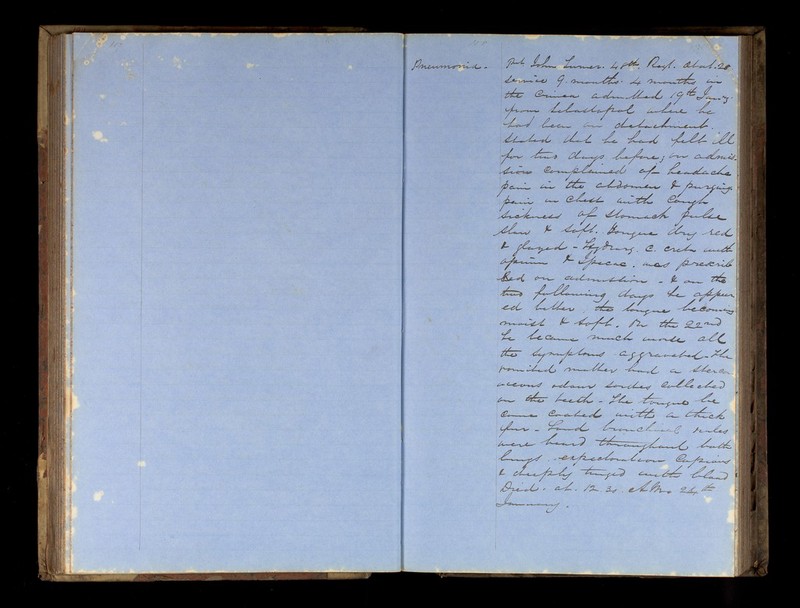 Pneumonia.
Pt John Turner. 48th Regt. aetat. 20
service 9 months. 4 months in
the Crimea admitted 19th Jany.
from Sebastopol where he
had been on detachment.
Stated that he had felt ill
for two days before; on admis-
sion complained of headache
pain in the abdomen & purging
pain in chest with cough
sickness of stomach pulse
slow & soft. Tongue dry red
& glazed - Hydrarg. c. creta with
opium & Ipecac. was prescrib
bed on admission - & on the
two following days he appear
ed better the tongue becoming
moist & soft. On the 22nd
he became much worse all
the symptoms aggravated. The
vomited matter had a sterco-
raceous odour sordes collected
on the teeth - The tongue be
came coated with a thick
fur - Loud bronchial rales
were heard throughout both
lungs expectoration copious
& deeply tinged with blood
Died. at 12.30 A.M. 24th
January.